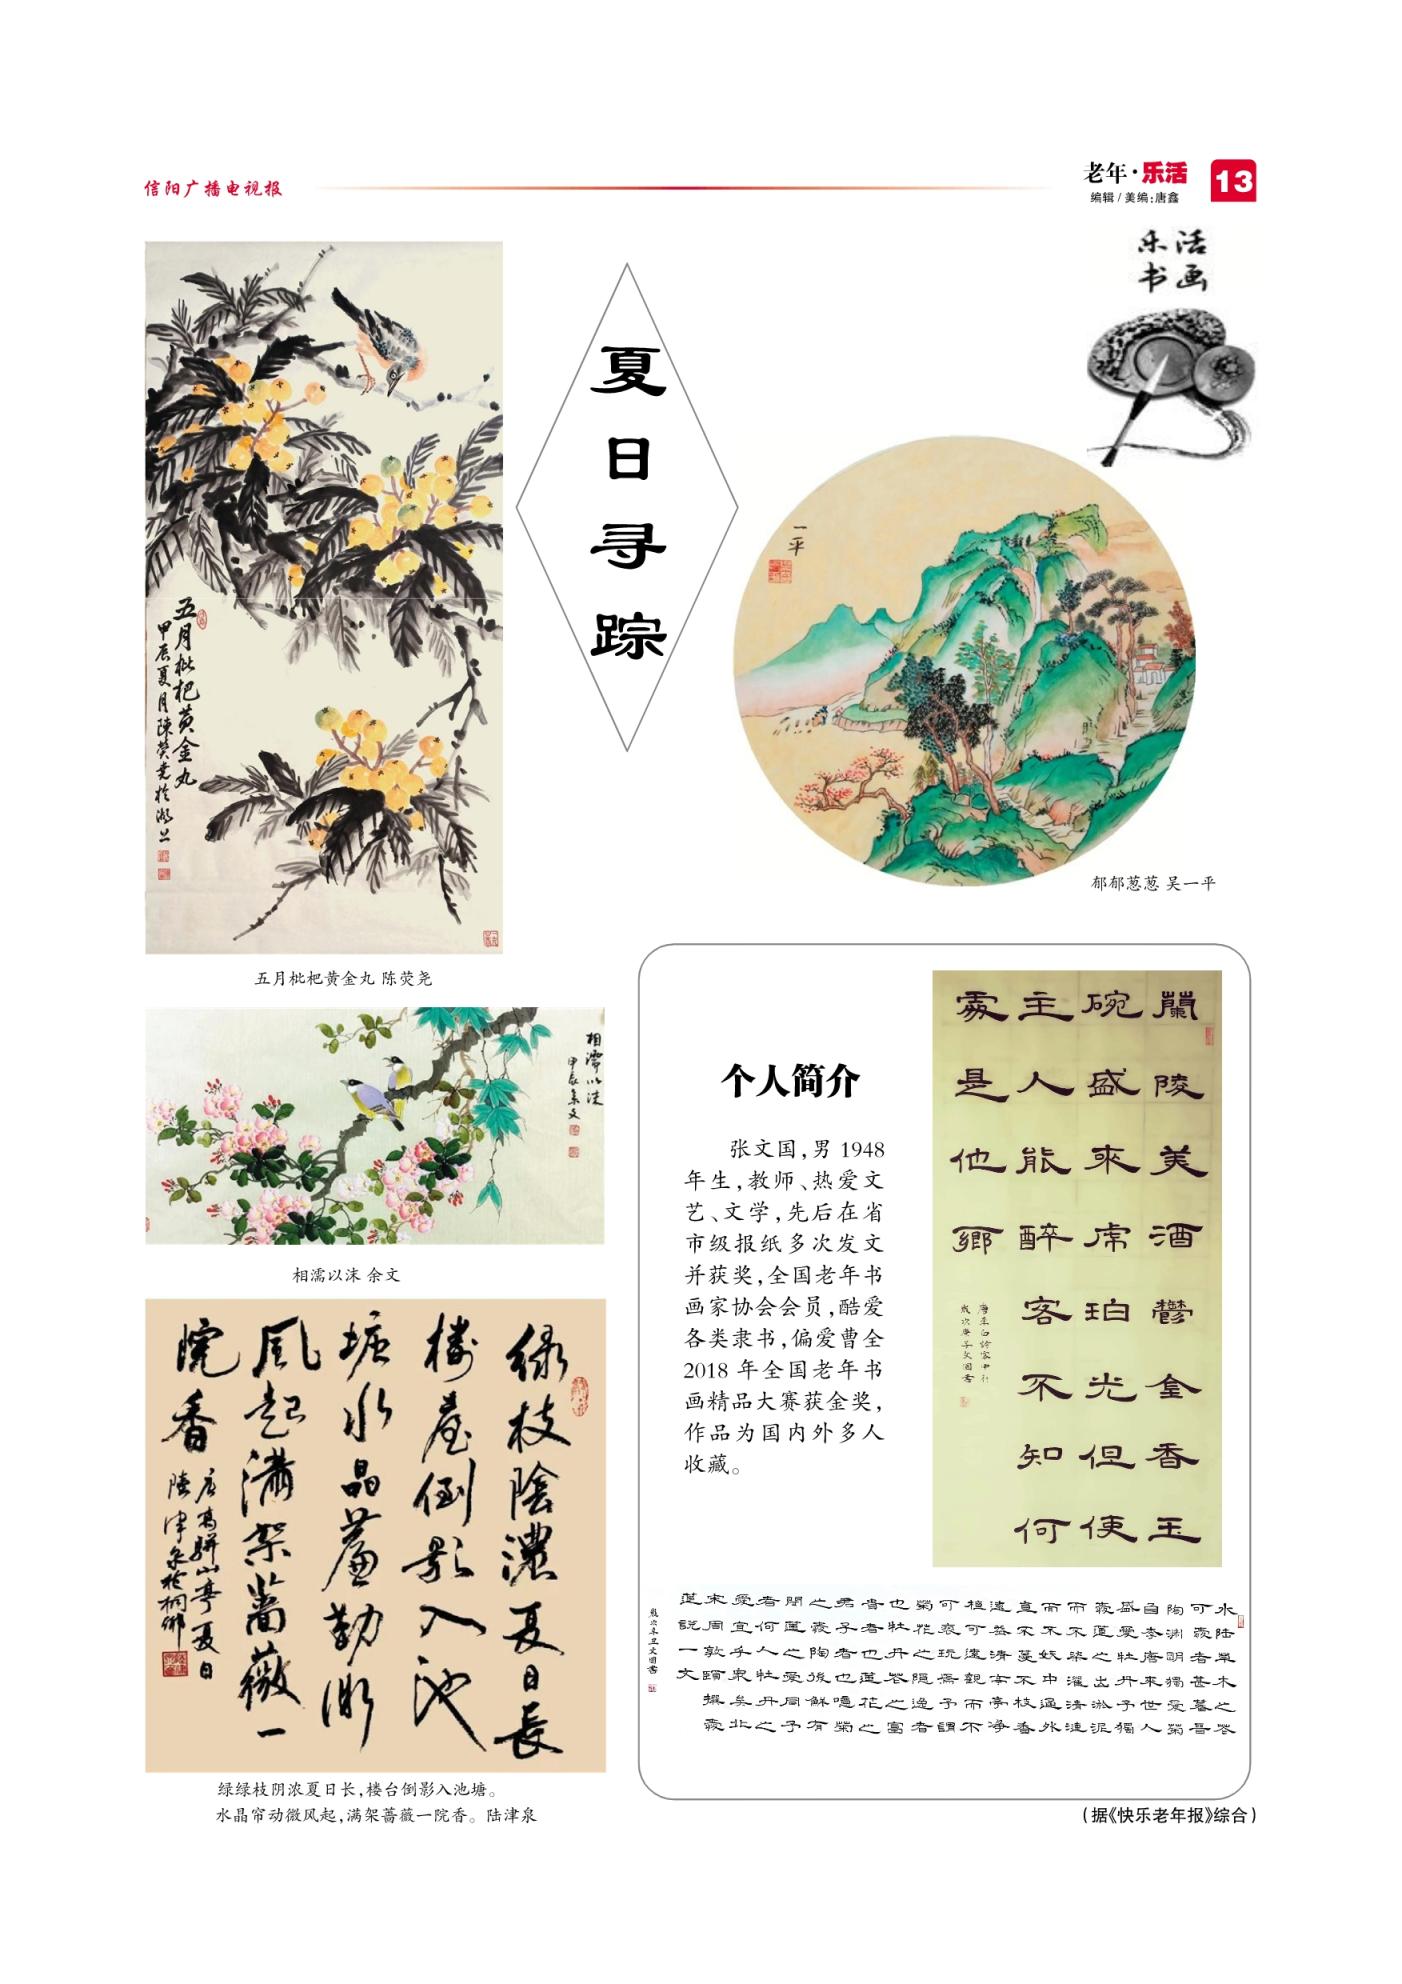 信阳广播电视报
老年·乐活
编辑/美编:唐鑫
13
乐活
书画
夏日寻踪
五月枇杷黄金丸
甲辰夏月陳荧尧於湖上
五月枇杷黄金丸 陈荧尧
一平
郁郁葱葱 吴一平
相濡以沫
甲辰余文
相濡以沫 余文
绿枝陰濃夏日長
樓臺倒影入池
塘水晶簾動微
風起滿架薔薇一
院香
唐高駢山亭夏日
陸津泉於桐鄉
绿绿枝阴浓夏日长,楼台倒影入池塘。
水晶帘动微风起,满架蔷薇一院香。 陆津泉
个人简介
张文国,男 1948
年生,教师、热爱文
艺、文学,先后在省
市级报纸多次发文
并获奖,全国老年书
画家协会会员,酷爱
各类隶书,偏爱曹全
2018 年全国老年书
画精品大赛获金奖,
作品为国内外多人
收藏。
蘭陵美酒鬱金香玉
碗盛來虎珀光但使
主人能醉客不知何
處是他鄉
唐李白詩客中行
歲次庚子文國書
水陆草木之花
可爱者甚蕃晉
陶渊明獨愛菊
自李唐來世人
盛愛牡丹予獨
爱蓮之出淤泥
而不染濯清漣
而不妖中通外
直不蔓不枝香
遠益清亭亭净
植可遠觀而不
可亵玩焉予謂
菊花之隐逸者
也牡丹花之富
貴者也蓮花之
君子者也噫菊
之爱陶後鮮有
聞蓮之爱同予
者何人牡丹之
愛宜乎衆矣北
宋周敦頤撰爱
莲說一文
歲次辛丑文國書
(据《快乐老年报》综合)